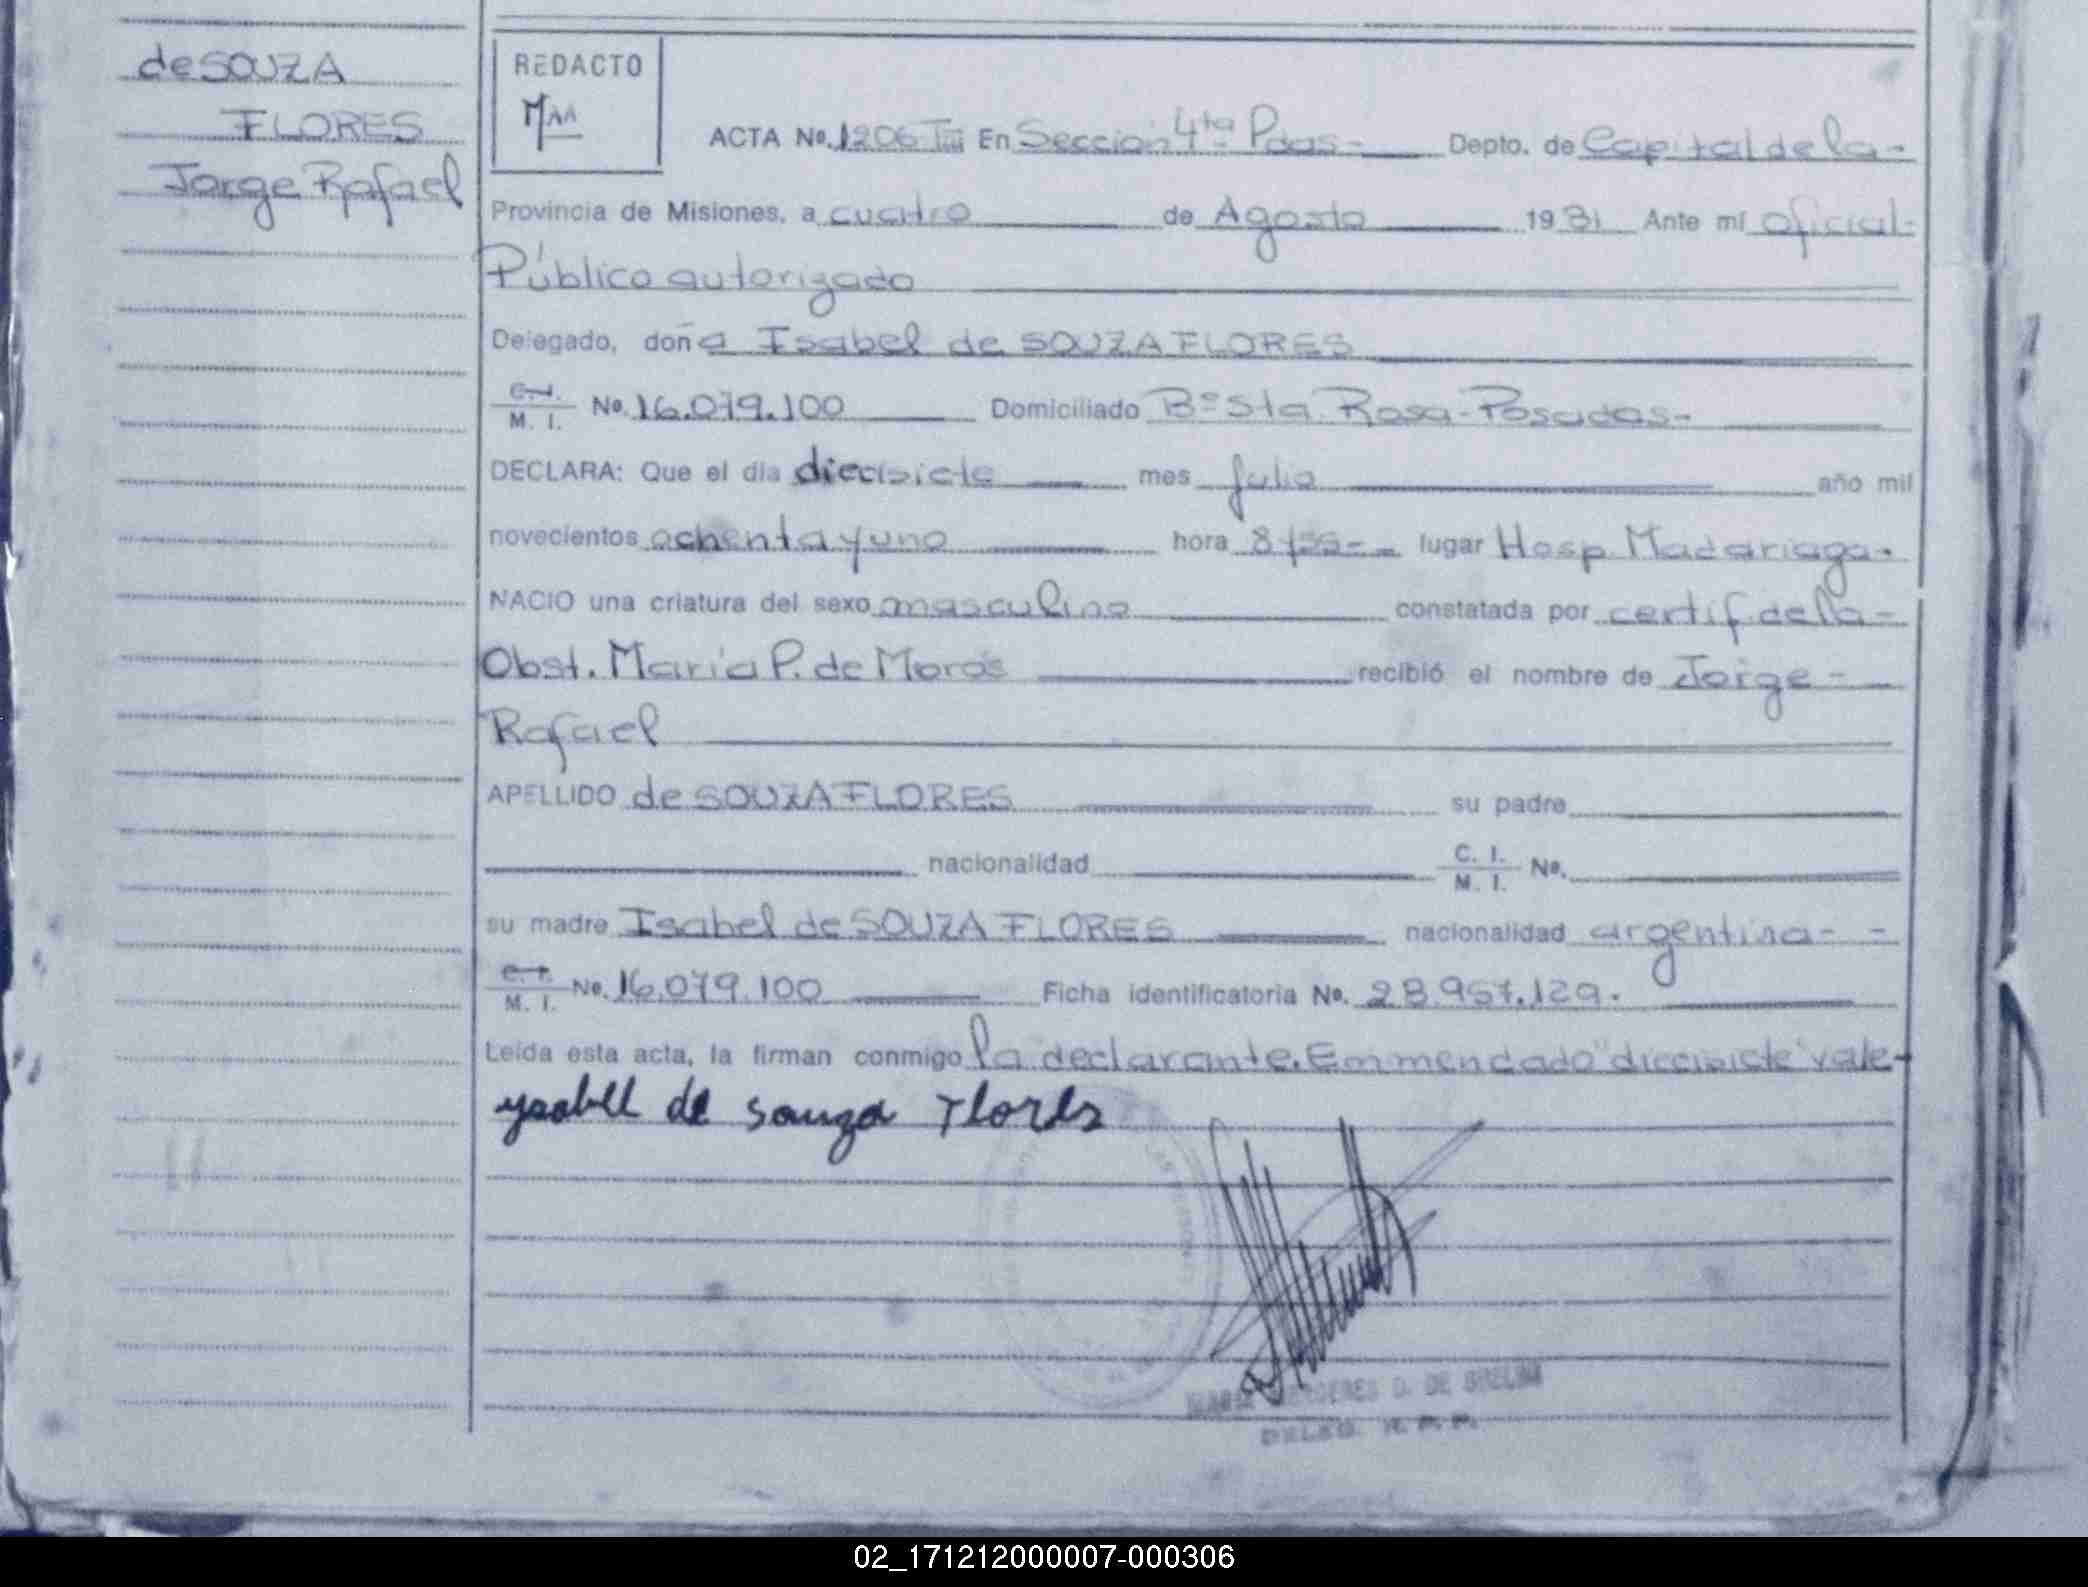 de SOUZA
FLORES
Jorge Rafael
REDACTO
MAA
ACTA No. 1206 TIII En Sección 4ta Pdas- Depto. de Capital de la-
Provincia de Misiones, a cuatro de Agosto 1981 Ante mí oficial-
Público autorizado
Delegado, doña Isabel de SOUZA FLORES
C.I. M. I. No. 16.079.100 Domiciliado Bº Sta Rosa-Posadas-
DECLARA: Que el día diecisiete mes julio año mil
novecientos ochenta y uno hora 8 lugar Hosp Madariaga.
NACIO una criatura del sexo masculino constatada por certif de la-
Obst. María P. de Moros recibió el nombre de Jorge-
Rafael
APELLIDO de SOUZA FLORES su padre
nacionalidad C. I. M. I. No.
su madre Isabel de SOUZA FLORES nacionalidad argentina- -
C. I. M. I. No. 16.079.100 Ficha identificatoria No. 28.957.129.
Leída esta acta, la firman conmigo la declarante. Emmendado "diecisiete" vale-
ysabell de souza Flores
D. DE
DELEG. R. P. P.
02_171212000007-000306